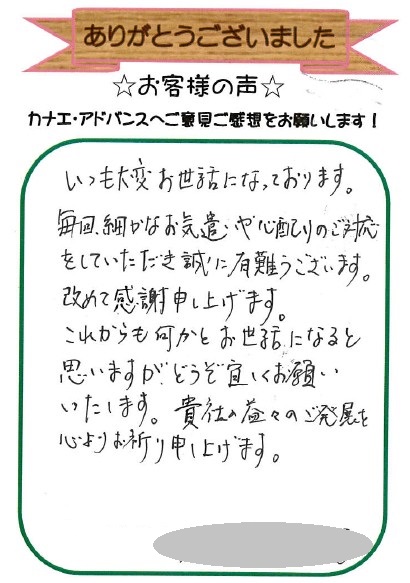 ありがとうございました
☆お客様の声☆
カナエ・アドバンスへご意見ご感想をお願いします！
いつも大変お世話になっております。
毎回、細かなお気遣いや心配りのご対応
をしていただき誠に有難うございます。
改めて感謝申し上げます。
これからも何かとお世話になると
思いますが、どうぞ宜しくお願い
いたします。貴社の益々のご発展を
心よりお祈り申し上げます。